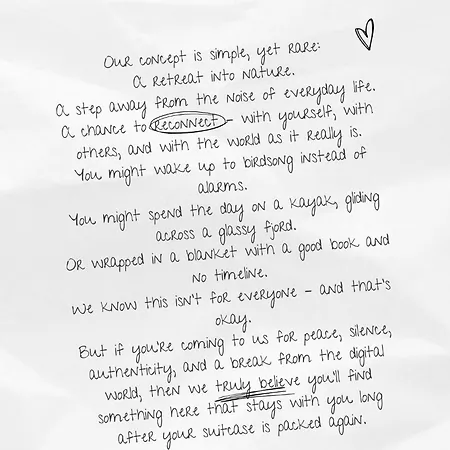 Our concept is simple, yet rare:
A retreat into nature.
A step away from the noise of everyday life.
A chance to reconnect – with yourself, with
others, and with the world as it really is.
You might wake up to birdsong instead of
alarms.
You might spend the day on a kayak, gliding
across a glassy fjord.
Or wrapped in a blanket with a good book and
no timeline.
We know this isn't for everyone – and that's
okay.
But if you're coming to us for peace, silence,
authenticity, and a break from the digital
world, then we truly believe you'll find
something here that stays with you long
after your suitcase is packed again.